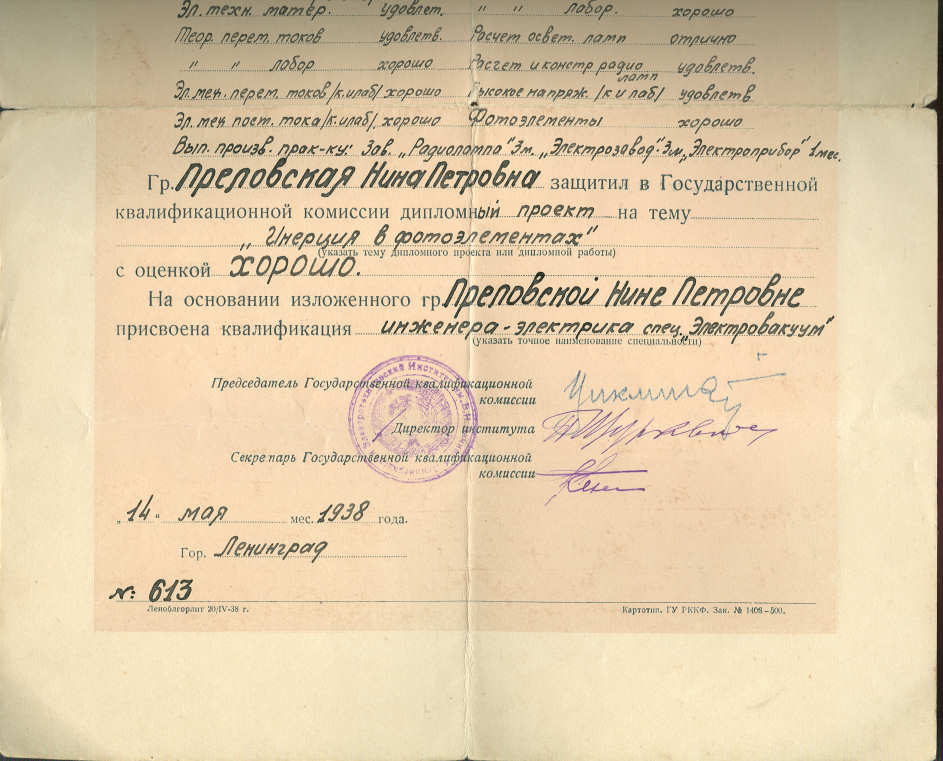 Эл. техн. матер. удовлет. " " лабор. хорошо
Теор. перем. токов удовлетв. Расчет освет. ламп отлично
" " лабор хорошо Расчет и констр радио ламп удовлетв.
Эл. меч. перем. токов /к. и лаб/ хорошо Высокое напряж. /к и лаб/ удовлетв
Эл. меч. пост. тока /к. и лаб/, хорошо Фотоэлементы хорошо
Вып. произв. прак-ку: Зав. „Радиолампа" 3 м. „Электрозавод"-3м., „Электроприбор" 1 мес.
Гр. Преловская Нина Петровна защитил в Государственной
квалификационной комиссии дипломный проект на тему
„Инерция в фотоэлементах"
(указать тему дипломного проекта или дипломной работы)
с оценкой хорошо.
На основании изложенного гр. Преловской Нине Петровне
присвоена квалификация инженера-электрика спец. „Электровакуум"
(указать точное наименование специальности)
Председатель Государственной квалификационной
комиссии
Директор института
Секретарь Государственной квалификационной
комиссии
„14" мая мес. 1938 года.
Гор. Ленинград
№: 613
Леноблгорлит 20/IV-38 г. Картотип. ГУ РККФ. Зак. № 1408-500.